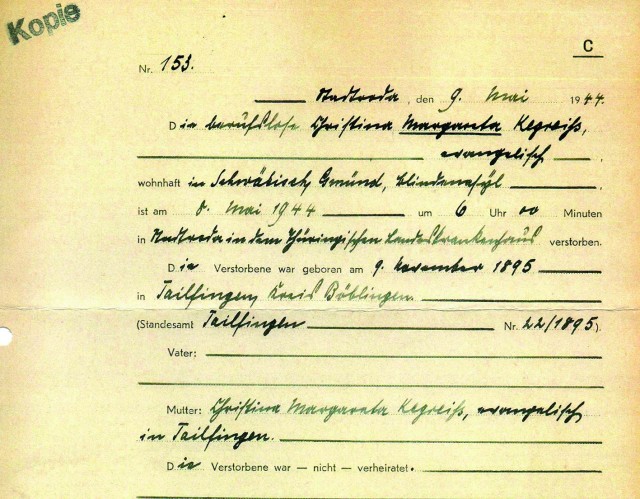 Kopie
C
Nr. 153.
Stadtroda, den 9. Mai 1944.
Die berufslose Christina Margareta Kegreiß,
evangelisch,
wohnhaft in Schwäbisch Gmünd, Blindenasyl
ist am 8. Mai 1944 um 6 Uhr 00 Minuten
in Stadtroda in dem Thüringischen Landeskrankenhaus verstorben.
Die Verstorbene war geboren am 9. November 1895
in Tailfingen, Kreis Böblingen.
(Standesamt Tailfingen Nr. 22/1895).
Vater:
Mutter: Christina Margareta Kegreiß, evangelisch
in Tailfingen.
Die Verstorbene war — nicht — verheiratet.